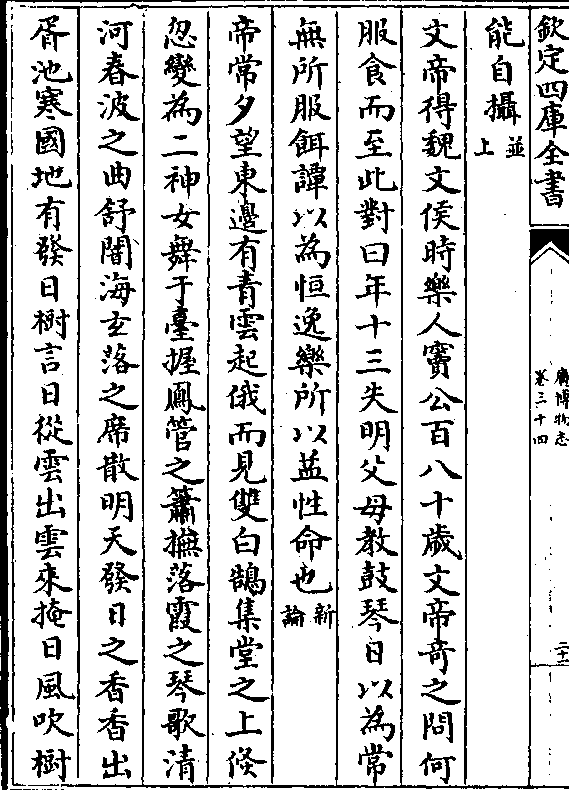 欽定四庫全書
廣博物志
卷三十四
二十一
能自攝並上
文帝得魏文侯時樂人竇公百八十歲文帝奇之問何
服食而至此對曰年十三失明父母教鼓琴日以為常
無所服餌譚以為恒逸樂所以益性命也新論
帝常夕望東邊有青雲起俄而見雙白鵠集堂之上倏
忽變為二神女舞于臺握鳳管之簫撫落霞之琴歌清
河春波之曲舒闇海玄落之席散明天發日之香香出
胥池寒國地有發日樹言日從雲出雲來掩日風吹樹